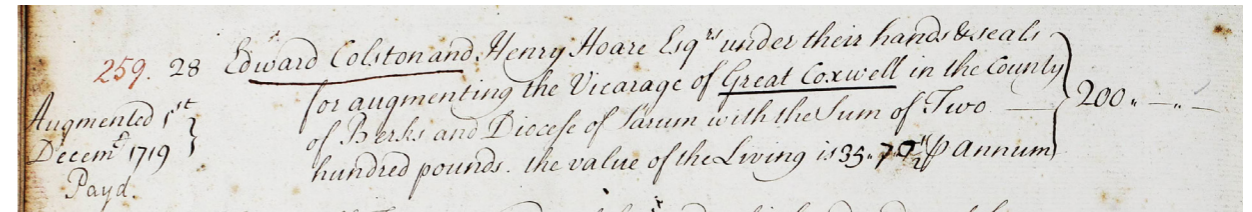 259. 28 Edward Colston and Henry Hoare Esqrs under their hands & seals
for augmenting the Vicarage of Great Coxwell in the County
of Berks and Diocese of Sarum with the Sum of Two — 200 „ — „ —
hundred pounds. the value of the Living is 35„ 7„ ꝑ annum
Augmented 1st
Decemr 1719
Payd.